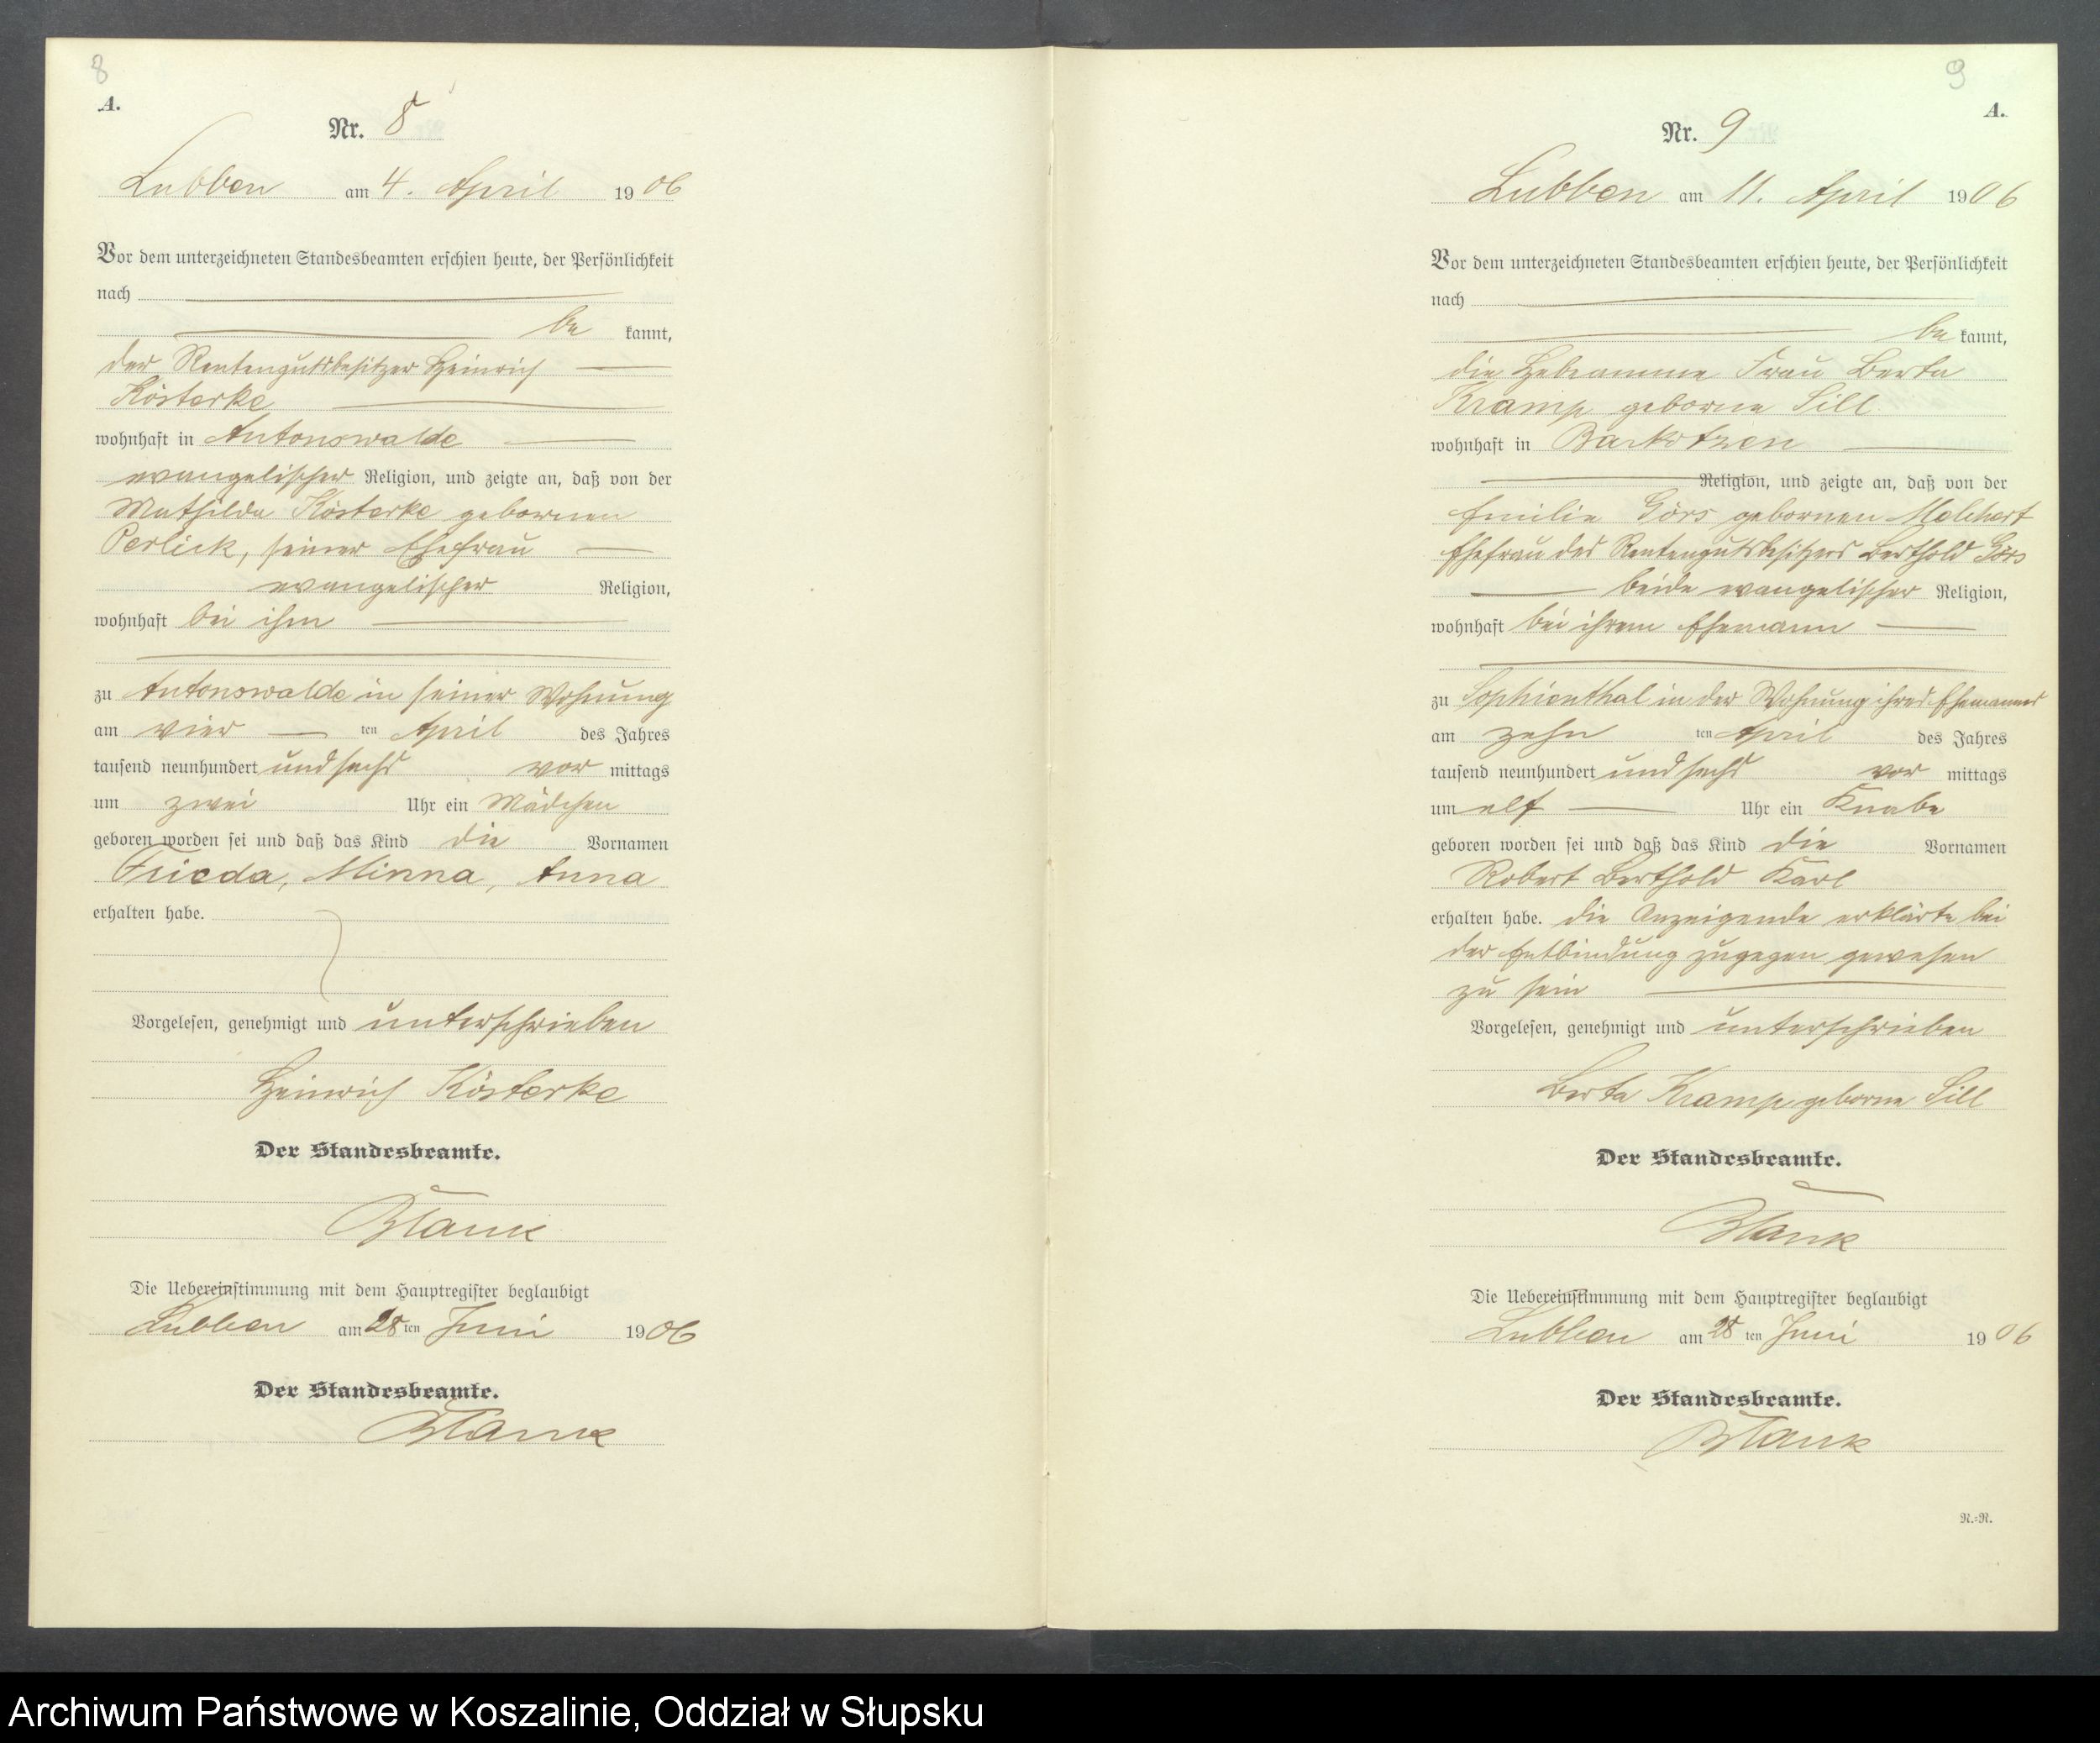 8
A.
Nr. 8
Lubben am 4. April 1906
Vor dem unterzeichneten Standesbeamten erschien heute, der Persönlichkeit
nach
be kannt,
der Rentengutsbesitzer Heinrich
Kösterke
wohnhaft in Antonswalde
evangelischer Religion, und zeigte an, daß von der
Mathilde Kösterke gebornen
Perlick, seiner Ehefrau
evangelischer Religion,
wohnhaft bei ihm
zu Antonswalde in seiner Wohnung
am vier ten April des Jahres
tausend neunhundert und sechs vor mittags
um zwei Uhr ein Mädchen
geboren worden sei und daß das Kind die Vornamen
Frieda, Minna, Anna
erhalten habe.
Vorgelesen, genehmigt und unterschrieben
Heinrich Kösterke
Der Standesbeamte.
Blank
Die Uebereinstimmung mit dem Hauptregister beglaubigt
Lubben am 28 ten Juni 1906
Der Standesbeamte.
Blank
9
A.
Nr. 9
Lubben am 11. April 1906
Vor dem unterzeichneten Standesbeamten erschien heute, der Persönlichkeit
nach
be kannt,
die Hebamme Frau Berta
Kramp geborne Sill
wohnhaft in Barkotzen
Religion, und zeigte an, daß von der
Emilie Görs gebornen Melchert
Ehefrau des Rentengutsbesitzers Berthold Görs
beide evangelischer Religion,
wohnhaft bei ihrem Ehemann
zu Sophienthal in der Wohnung ihres Ehemannes
am zehn ten April des Jahres
tausend neunhundert und sechs vor mittags
um elf Uhr ein Knabe
geboren worden sei und daß das Kind die Vornamen
Robert Berthold Karl
erhalten habe. die Anzeigende erklärte bei
der Entbindung zugegen gewesen
zu sein
Vorgelesen, genehmigt und unterschrieben
Berta Kramp geborne Sill
Der Standesbeamte.
Blank
Die Uebereinstimmung mit dem Hauptregister beglaubigt
Lubben am 28 ten Juni 1906
Der Standesbeamte.
Blank
R.=R.
Archiwum Państwowe w Koszalinie, Oddział w Słupsku